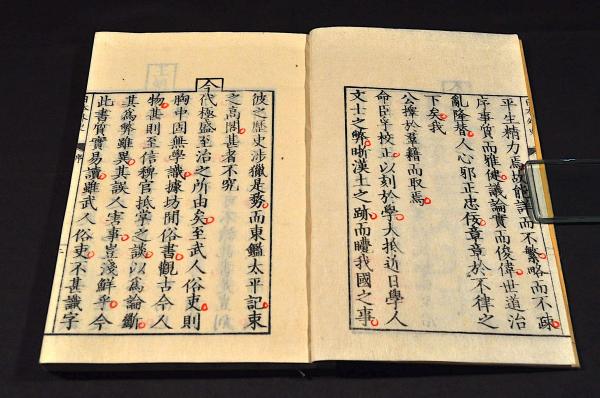 平生精力焉故能詳而不繁略而不疎
序事質而雅健議論實而俊偉世道治
亂隆替人心邪正忠佞章章於不律之
下矣我
公擇於羣籍而取焉
命臣等校正以刻於學大抵近日學人
文士之弊晰漢土之跡而瞢我國之事
彼之歷史涉獵是務而東鑑太平記束
之高閣甚者不究
今代極盛至治之所由矣至武人俗吏則
胸中固無學識據坊間俗書觀古今人
物甚則至信稗官抵掌之談以為論斷
其為弊雖異其誤人害事豈淺鮮乎今
此書質實易讀雖武人俗吏不甚識字